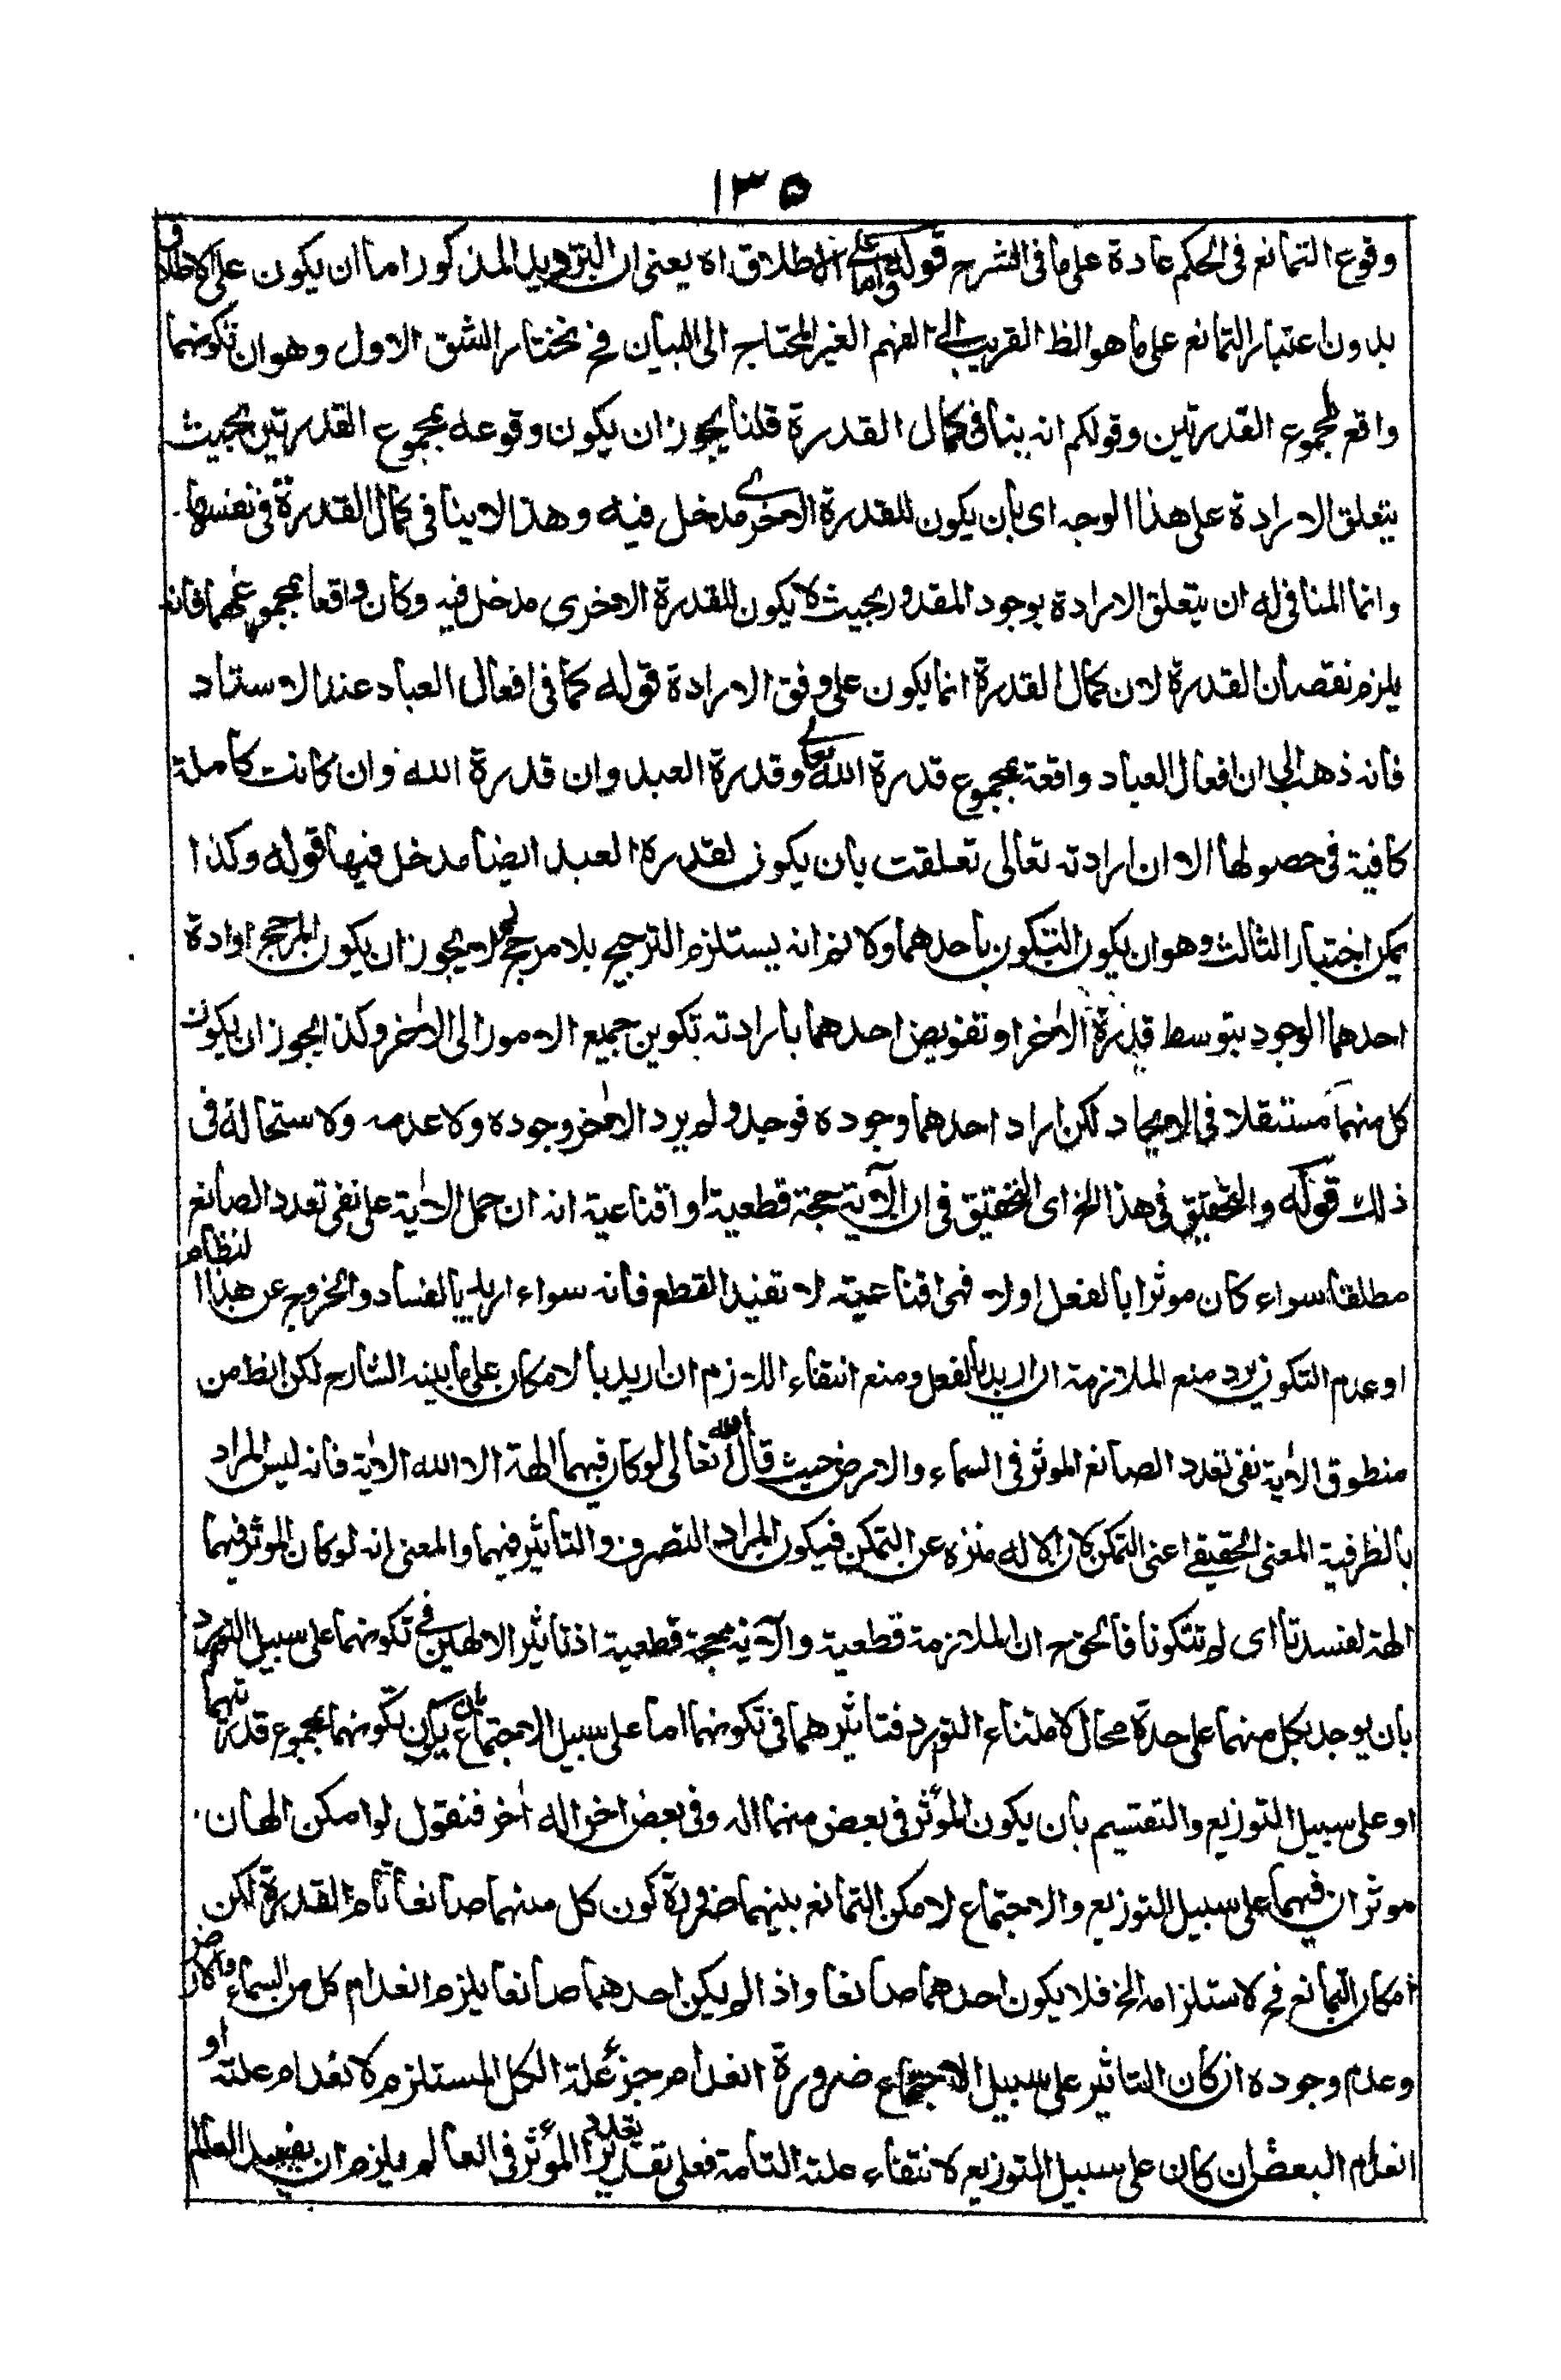 ١٣٥
وقوع التمانع فى الحكم عادة على ما فى الشرح قوله واما على الاطلاق اه يعنى ان الترديد المذكور اما ان يكون على الاطلاق
بدون اعتبار التمانع على ما هو الظ القريب الى الفهم الغير المحتاج الى البيان فح نختار الشق الاول وهو ان تكونهما
واقع لمجموع القدرتين وقولكم انه ينافى كمال القدرة قلنا يجوز ان يكون وقوعه بمجموع القدرتين بحيث
يتعلق الارادة على هذا الوجه اى بان يكون للقدرة الاخرى مدخل فيه وهذا لا ينافى كمال القدرة فى نفسها
وانما المنافى له ان يتعلق الارادة بوجود المقدور بحيث لا يكون للقدرة الاخرى مدخل فيه وكان واقعا بمجموعهما فانه
يلزم نقصان القدرة لان كمال القدرة انما يكون على وفق الارادة قوله كما فى افعال العباد عند الاستاد
فانه ذهب الى ان افعال العباد واقعة بمجموع قدرة الله تعالى وقدرة العبد وان قدرة الله وان كانت كاملة
كافية فى حصولها الا ان ارادته تعالى تعلقت بان يكون لقدرة العبد ايضا مدخل فيها قوله وكذا
يمكن اختيار الثالث وهو ان يكون التكون باحدهما ولا نم انه يستلزم الترجيح بلا مرجح لم لا يجوز ان يكون المرجح ارادة
احدهما الوجود بتوسط قدرة الاخر او تفويض احدهما بارادته تكوين جميع الامور الى الاخر وكذا يجوز ان يكون
كل منهما مستقلا فى الايجاد لكن اراد احدهما وجوده فوجد ولم يرد الاخر وجوده ولا عدمه ولا استحالة فى
ذلك قوله والتحقيق فى هذا الخ اى التحقيق فى ان الآية حجة قطعية او اقناعية انه ان حمل الاية على نفى تعدد الصانع
مطلقا سواء كان موثرا بالفعل او لا فهى اقناعية لا تفيد القطع فانه سواء اريد بالفساد والخروج عن هذا النظام
او عدم التكون يرد منع الملازمة ان اريد بالفعل ومنع انتفاء اللازم ان اريد بالامكان على ما بينه الشارح لكن الظ من
منطوق الاية نفى تعدد الصانع الموثر فى السماء والارض حيث قال الله تعالى لو كان فيهما الهة الا الله الاية فانه ليس المراد
بالظرفية المعنى الحقيقے اعنى التمكن لان الاله منزه عن التمكن فيكون المراد التصرف والتأثير فيهما والمعنى انه لو كان الموثر فيهما
الهة لفسدتا اى لم تتكونا فالحق ح ان الملازمة قطعية والآية حجة قطعية اذ تاثير الالهين فى تكونهما على سبيل التوارد
بان يوجد بكل منهما على حدة محال لامتناع التوارد فتاثيرهما فى تكونهما اما على سبيل الاجتماع بان يكون تكونهما بمجموع قدرتهما
او على سبيل التوزيع والتقسيم بان يكون المؤثر فى بعض منهما اله وفى بعض اخر اله اخر فنقول لو امكن الهان
موثران فيهما على سبيل التوزيع والاجتماع لامكن التمانع بينهما ضرورة كون كل منهما صانعا تام القدرة لكن
امكان التمانع فح لاستلزامه الخ فلا يكون احدهما صانعا واذا لم يكن احدهما صانعا يلزم انعدام كل من السماء والارض
وعدم وجوده ان كان التاثير على سبيل الاجتماع ضرورة انعدام جزء علة الكل المستلزم لانعدام علته او
انعدام البعض ان كان على سبيل التوزيع لانتفاء علته التامة فعلى تقدير تعدد المؤثر فى العالم يلزم ان يفسد العالم